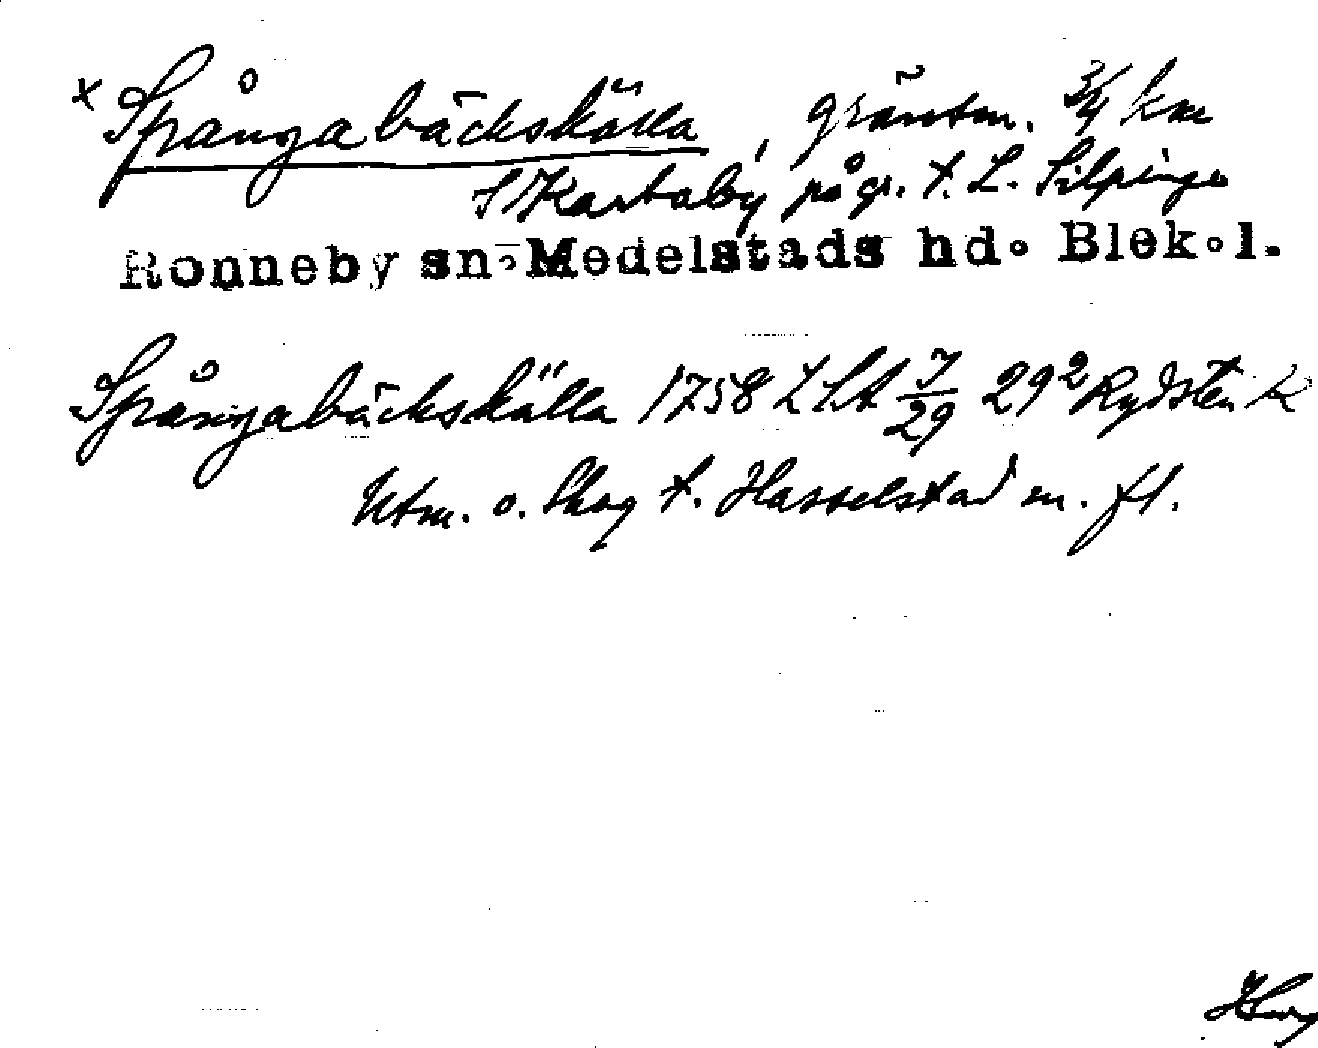 x Spångabäckskälla, gräntm. 3/4 km
S Kartaby på gr. t. L. Silpinge
Ronneby sn, Medelstads hd. Blek. l.
Spångabäckskälla 1758 LSA 7/29 29² Rydsten K
Utm. o. Skog t. Hasselstad m. fl.